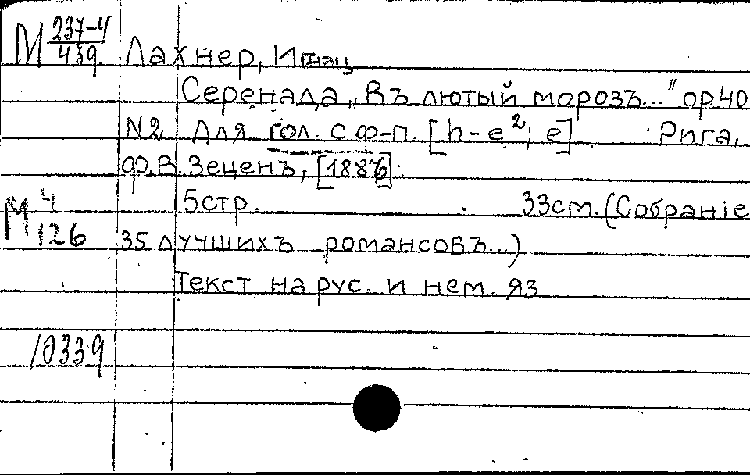 М 237-4/439 Лахнер, Игнац
Серенада „Въ лютый морозъ..." ор.40
N2 Для гол. с ф-п. [h-e², e] Рига,
Ф.В. Зеценъ, [1886].
5стр. 33см. (Собранiе
М 4/126 35 лучшихъ романсовъ...)
Текст на рус. и нем. яз
10339